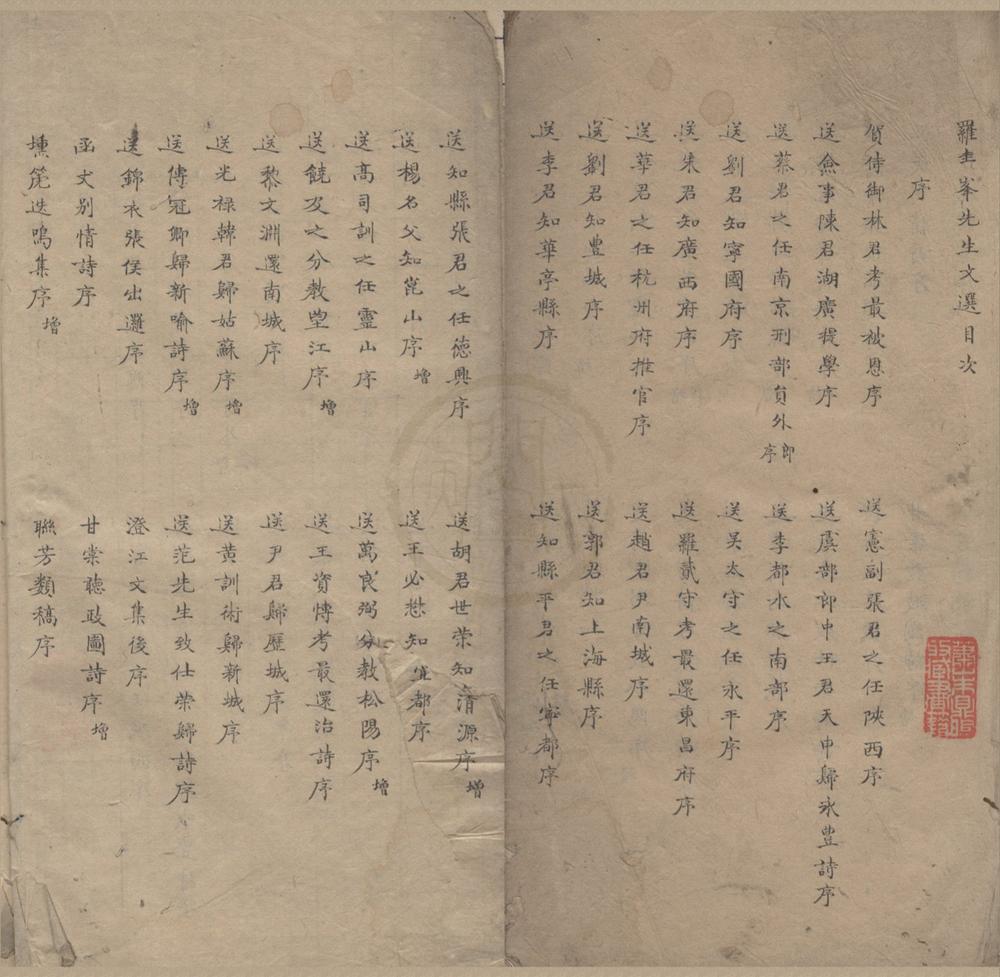 羅圭峯先生文選目次
序
賀侍御林君考最被恩序
送憲副張君之任陝西序
送僉事陳君湖廣提學序
送虞部郎中王君天申歸永豐詩序
送蔡君之任南京刑部員外郎序
送李都水之南部序
送劉君知寧國府序
送吴太守之任永平序
送朱君知廣西府序
送羅貳守考最還東昌府序
送華君之任杭州府推官序
送趙君尹南城序
送劉君知豐城序
送郭君知上海縣序
送李君知華亭縣序
送知縣平君之任寧都序
送知縣張君之任德興序
送胡君世荣知清源序增
送楊名父知崑山序增
送王必愁知宜都序
送高司訓之任靈山序
送萬良弼分教松陽序增
送饒及之分教望江序增
送王資愽考最還治詩序
送黎文淵還南城序
送尹君歸歷城序
送光禄韓君歸姑蘇序增
送黄訓術歸新城序
送傅冠卿歸新喻詩序增
送范先生致仕荣歸詩序
送錦衣張侯出邏序
澄江文集後序
函丈别情詩序
甘棠聽政圖詩序增
壎箎迭鳴集序增
聯芳類稿序